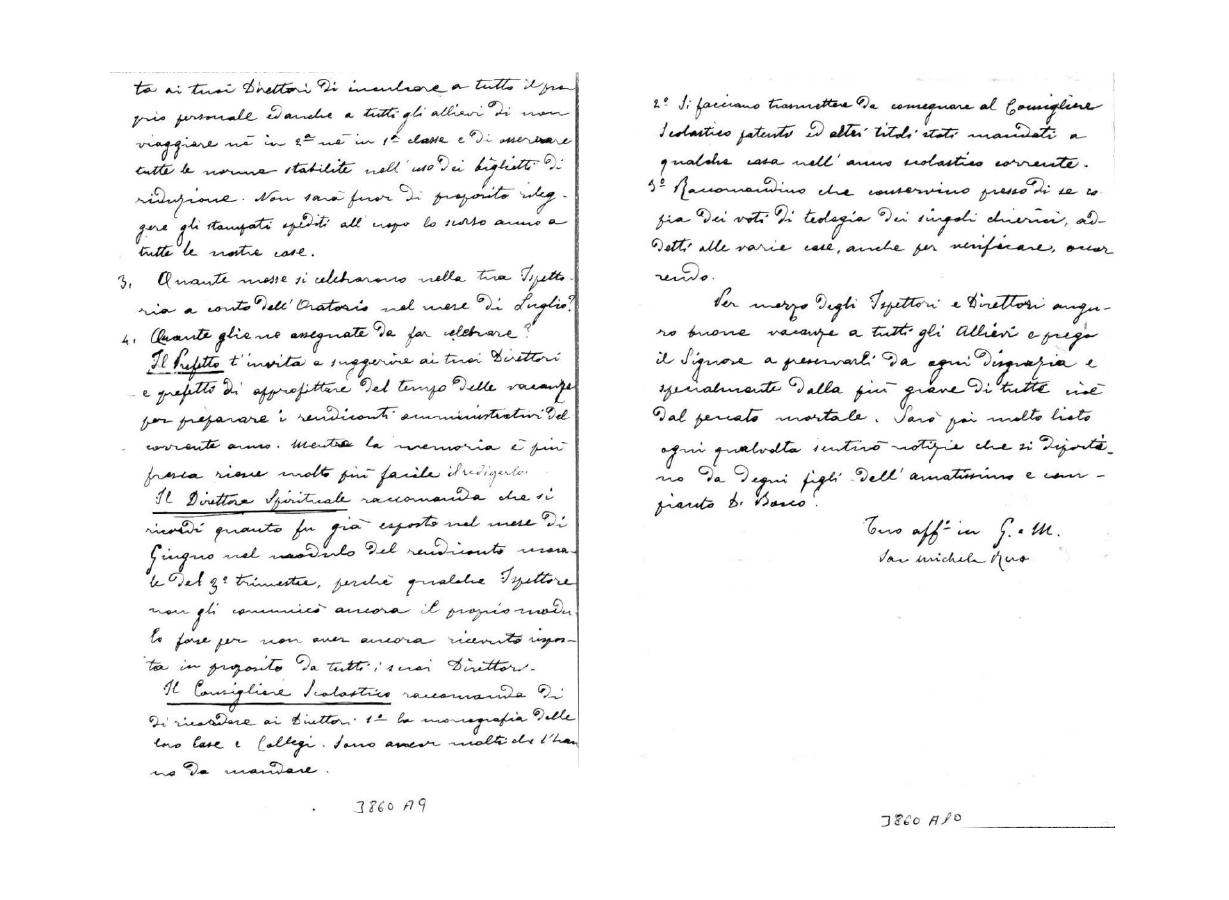 ta ai tuoi Direttori di inculcare a tutto il pro-
prio personale ed anche a tutti gli allievi di non
viaggiare nè in 2ª nè in 1ª classe e di osservare
tutte le norme stabilite nell'uso dei biglietti di
riduzione. Non sarà fuor di proposito rileg-
gere gli stampati spediti all'uopo lo scorso anno a
tutte le nostre case.
3. Quante messe si celebrarono nella tua Ispetto-
ria a conto dell'Oratorio nel mese di Luglio?
4. Quante gliene assegnate da far celebrare?
Il Prefetto t'invita a suggerire ai tuoi Direttori
e prefetti di approfittare del tempo delle vacanze
per preparare i rendiconti amministrativi del
corrente anno. Mentre la memoria è più
fresca riesce molto più facile il redigerlo.
Il Direttore Spirituale raccomanda che si
ricordi quanto fu già esposto nel mese di
Giugno nel modulo del rendiconto mora-
le del 3º trimestre, perchè qualche Ispettore
non gli comunicò ancora il proprio modu-
lo forse per non aver ancora ricevuto rispos-
ta in proposito da tutti i suoi Direttori.
Il Consigliere Scolastico raccomanda di
di ricordare ai Direttori 1º la monografia delle
loro Case e Collegi. Sono ancor molti che l'han
no da mandare.
3860 A9
2º Si facciano trasmettere da consegnare al Consigliere
Scolastico patenti ed altri titoli stati mandati a
qualche casa nell'anno scolastico corrente.
3º Raccomandino che conservino presso di se co
pia dei voti di teologia dei singoli chierici, ad-
detti alle varie case, anche per verificare, occor
rendo.
Per mezzo degli Ispettori e Direttori augu-
ro buone vacanze a tutti gli Allievi e prego
il Signore a preservarli da ogni disgrazia e
specialmente dalla più grave di tutte cioè
dal peccato mortale. Sarò poi molto lieto
ogni qualvolta sentirò notizie che si diporta-
no da degni figli dell'amatissimo e com-
pianto D. Bosco.
Tuo aff.º in G. e M.
Sac Michele Rua
3860 A10